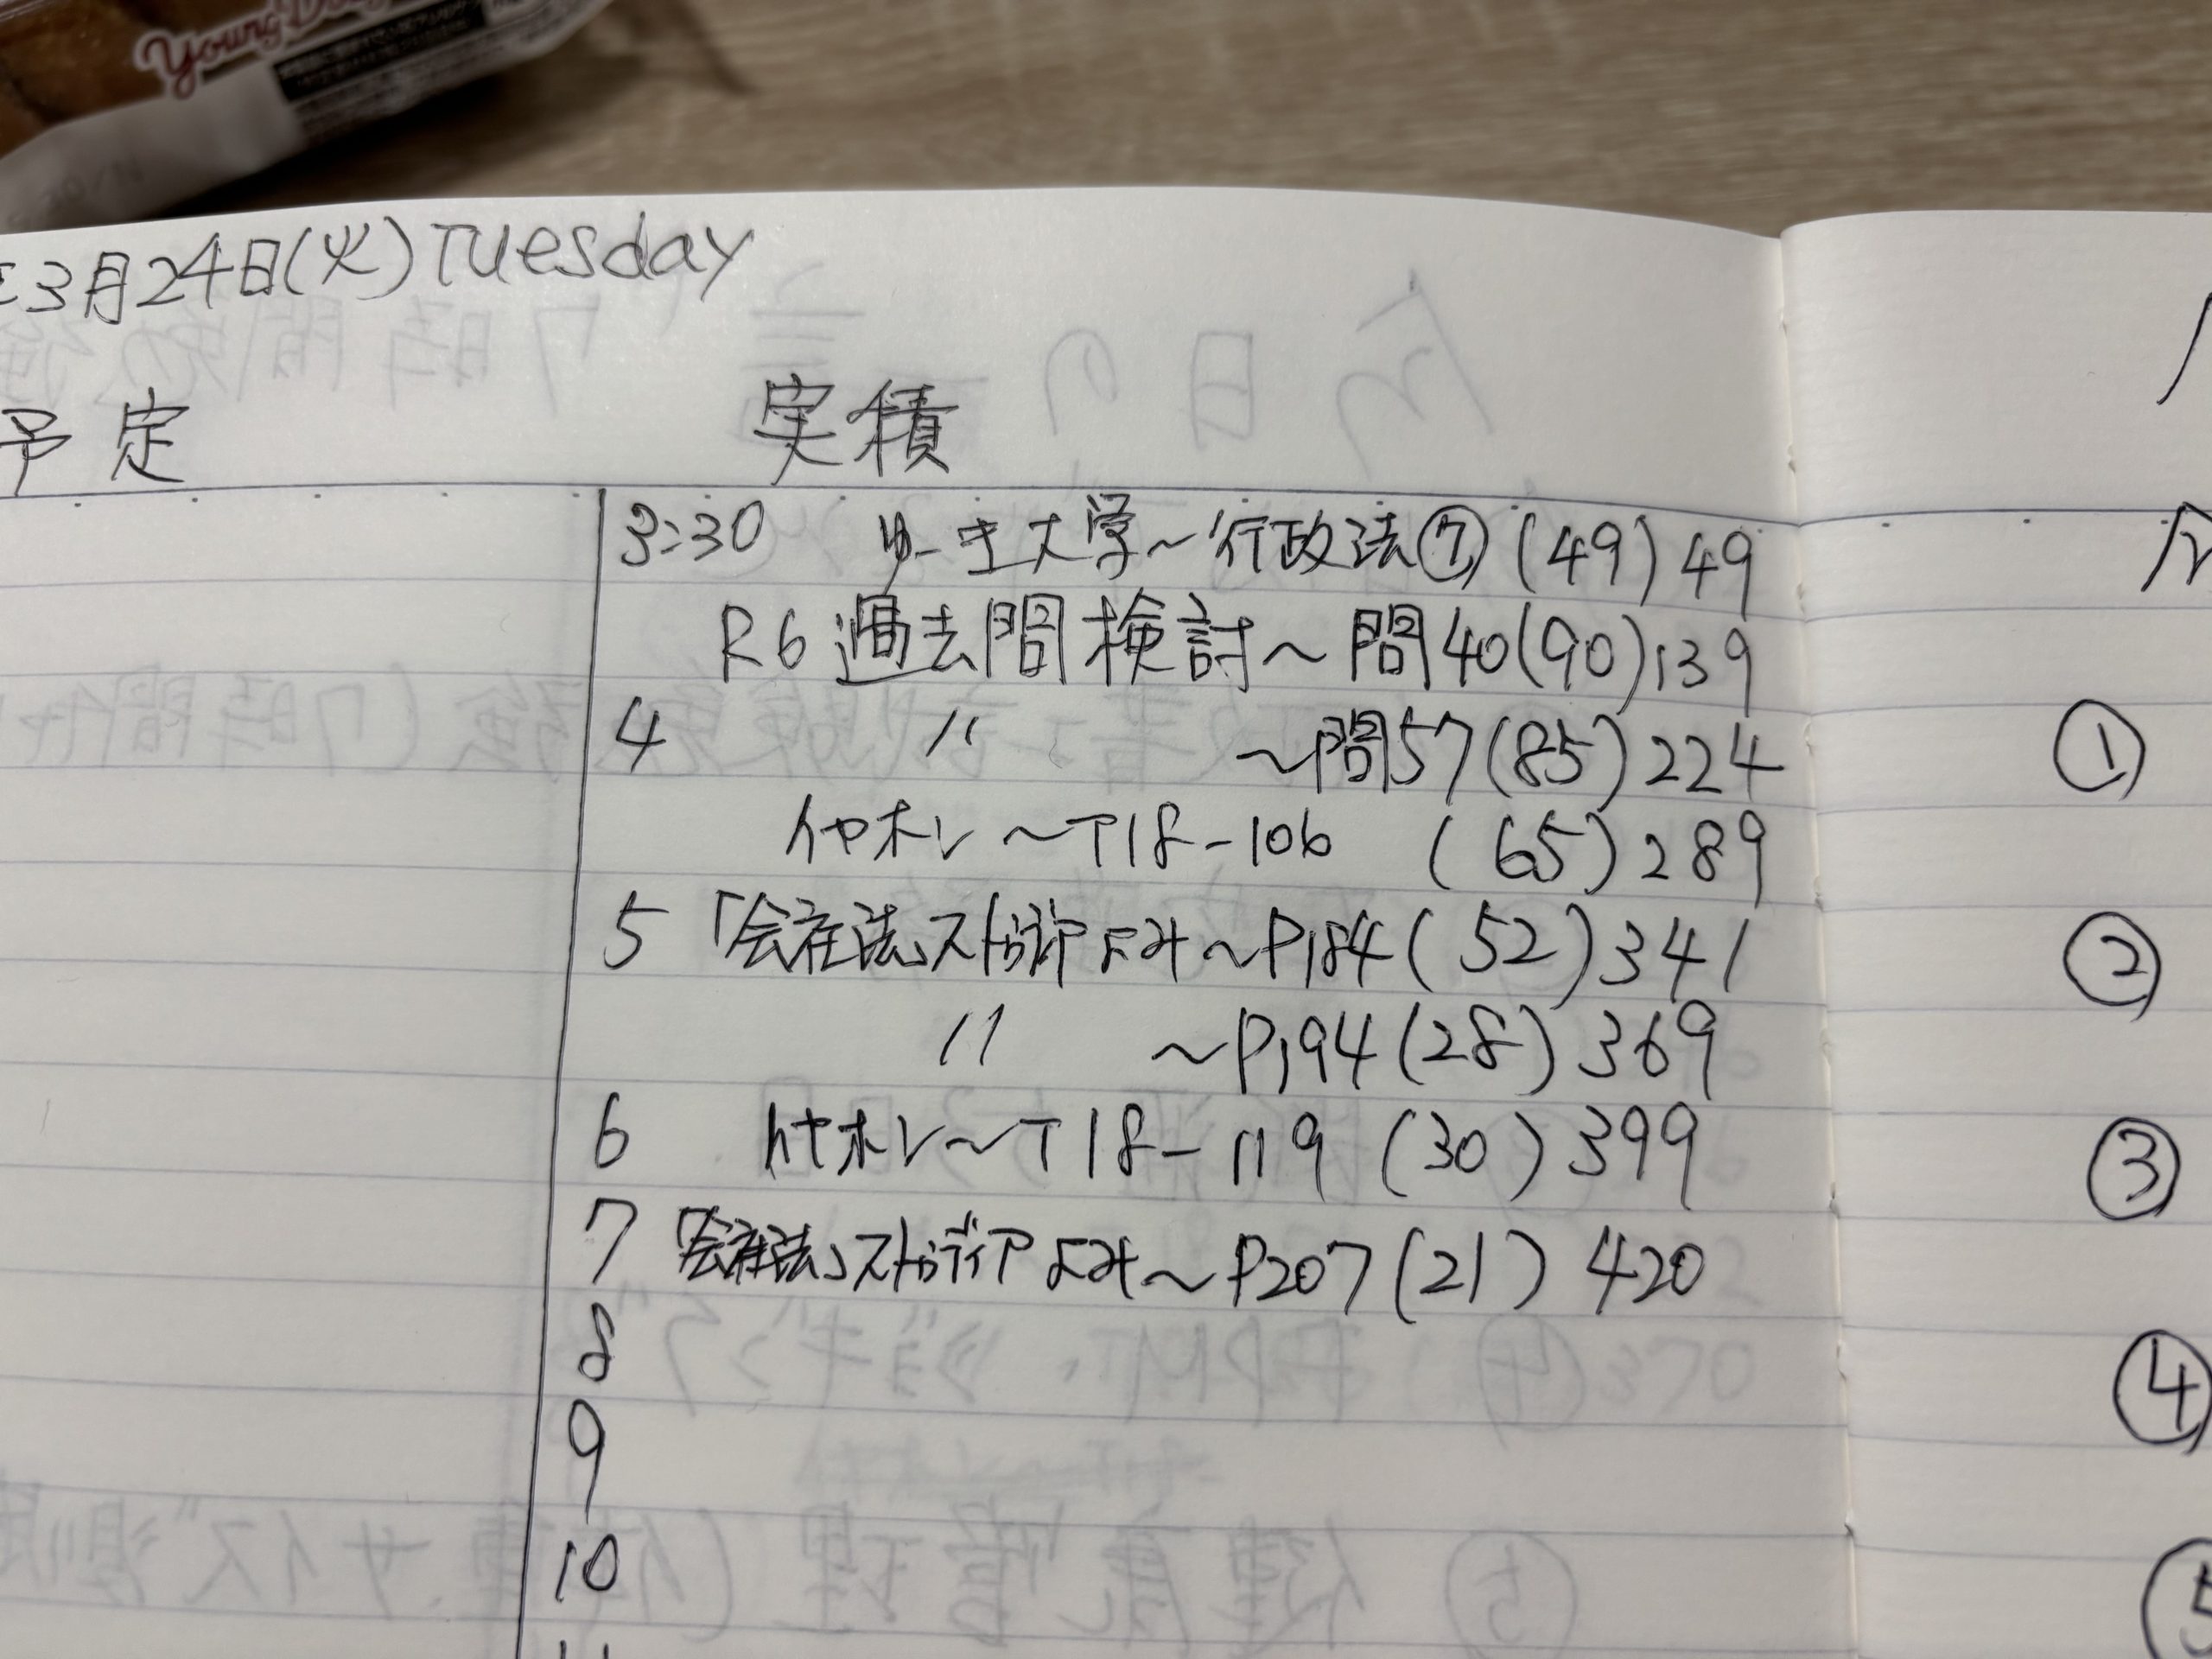 Young Do
3月24日(火)Tuesday
予定 実積
3:30 ゆーき大学～行政法⑦(49)49
R6過去問検討～問40(90)139
4 〃 ～問57(85)224
①
イヤホン～T18-106 (65)289
5 「会社法」ストゥディアよみ～P184(52)341
②
〃 ～P194(28)369
6 イヤホン～T18-119 (30)399
③
7 「会社法」ストゥディアよみ～P207(21)420
8
④
9
10
⑤